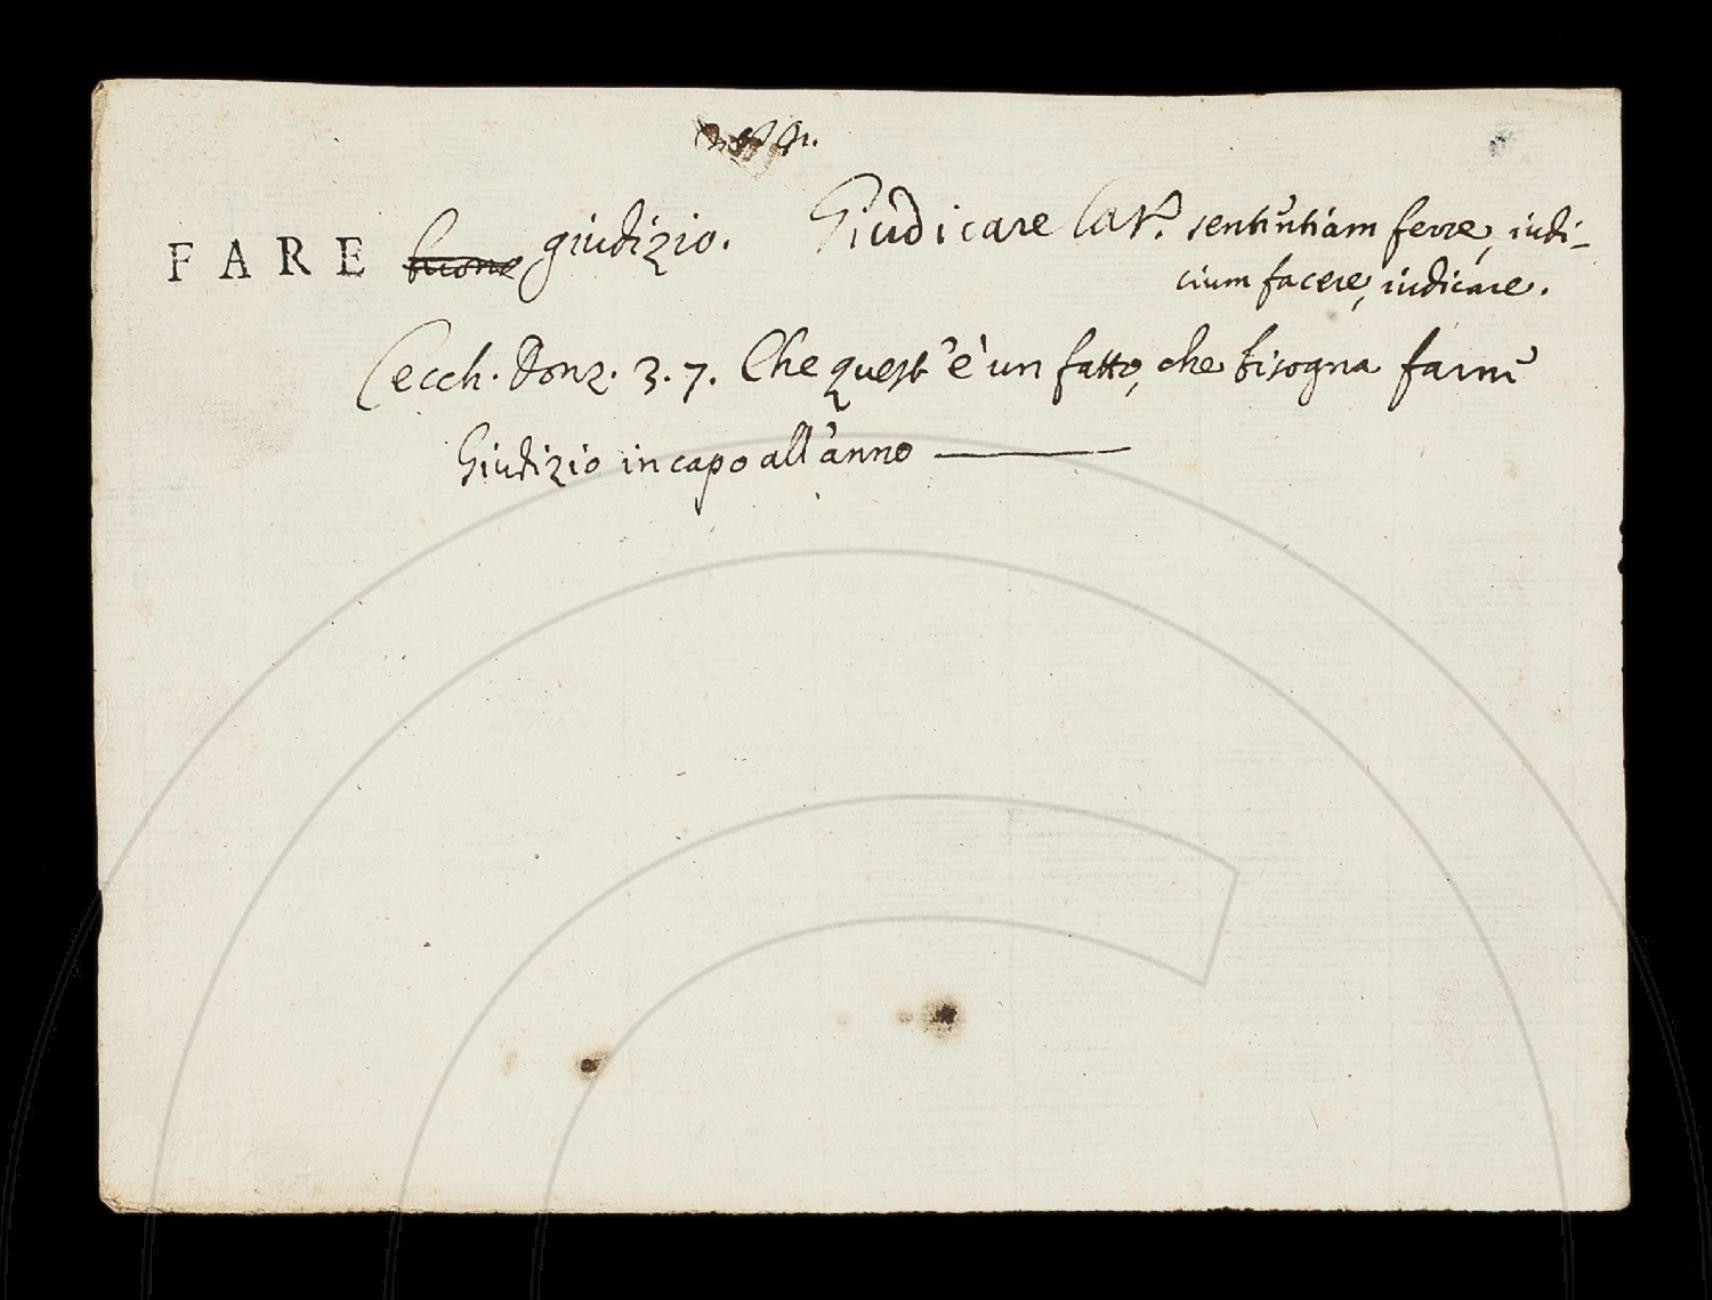 FARE buono giudizio. Giudicare Lat. sententiam ferre, iudi-
cium facere, iudicare.
Cecch. Donz. 3. 7. Che quest'è un fatto, che bisogna farne
Giudizio in capo all'anno